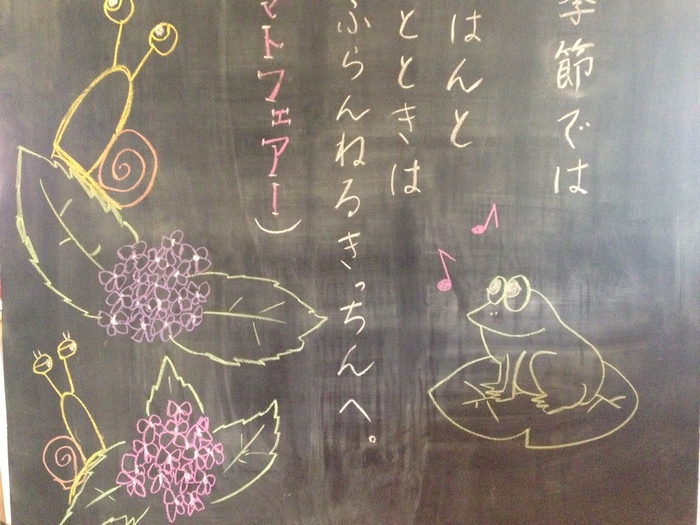 季節では
はんと
とときは
ふらんねるきっちんへ。
マトフェアー）